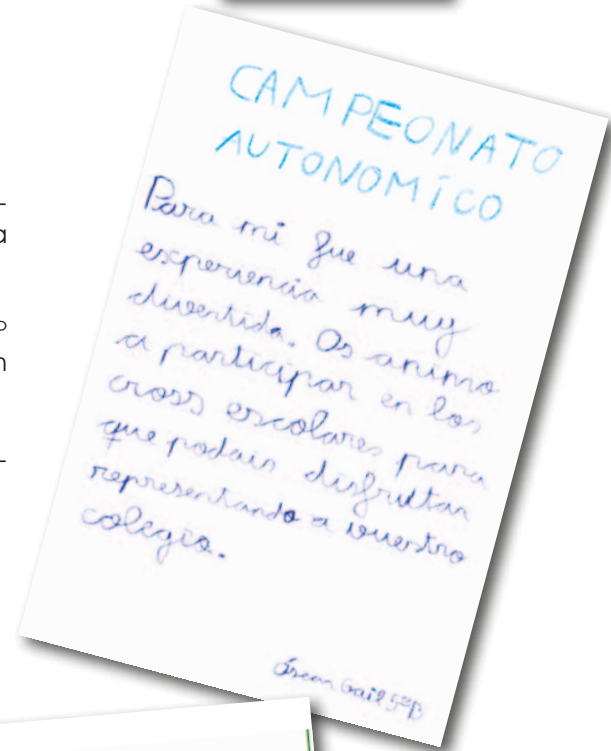 CAMPEONATO
AUTONOMÍCO
Para mi fue una
experiencia muy
divertida. Os animo
a participar en los
cross escolares para
que podais disfrutar
representando a vuestro
colegio.
Óscar Gail 5ºB
a
n